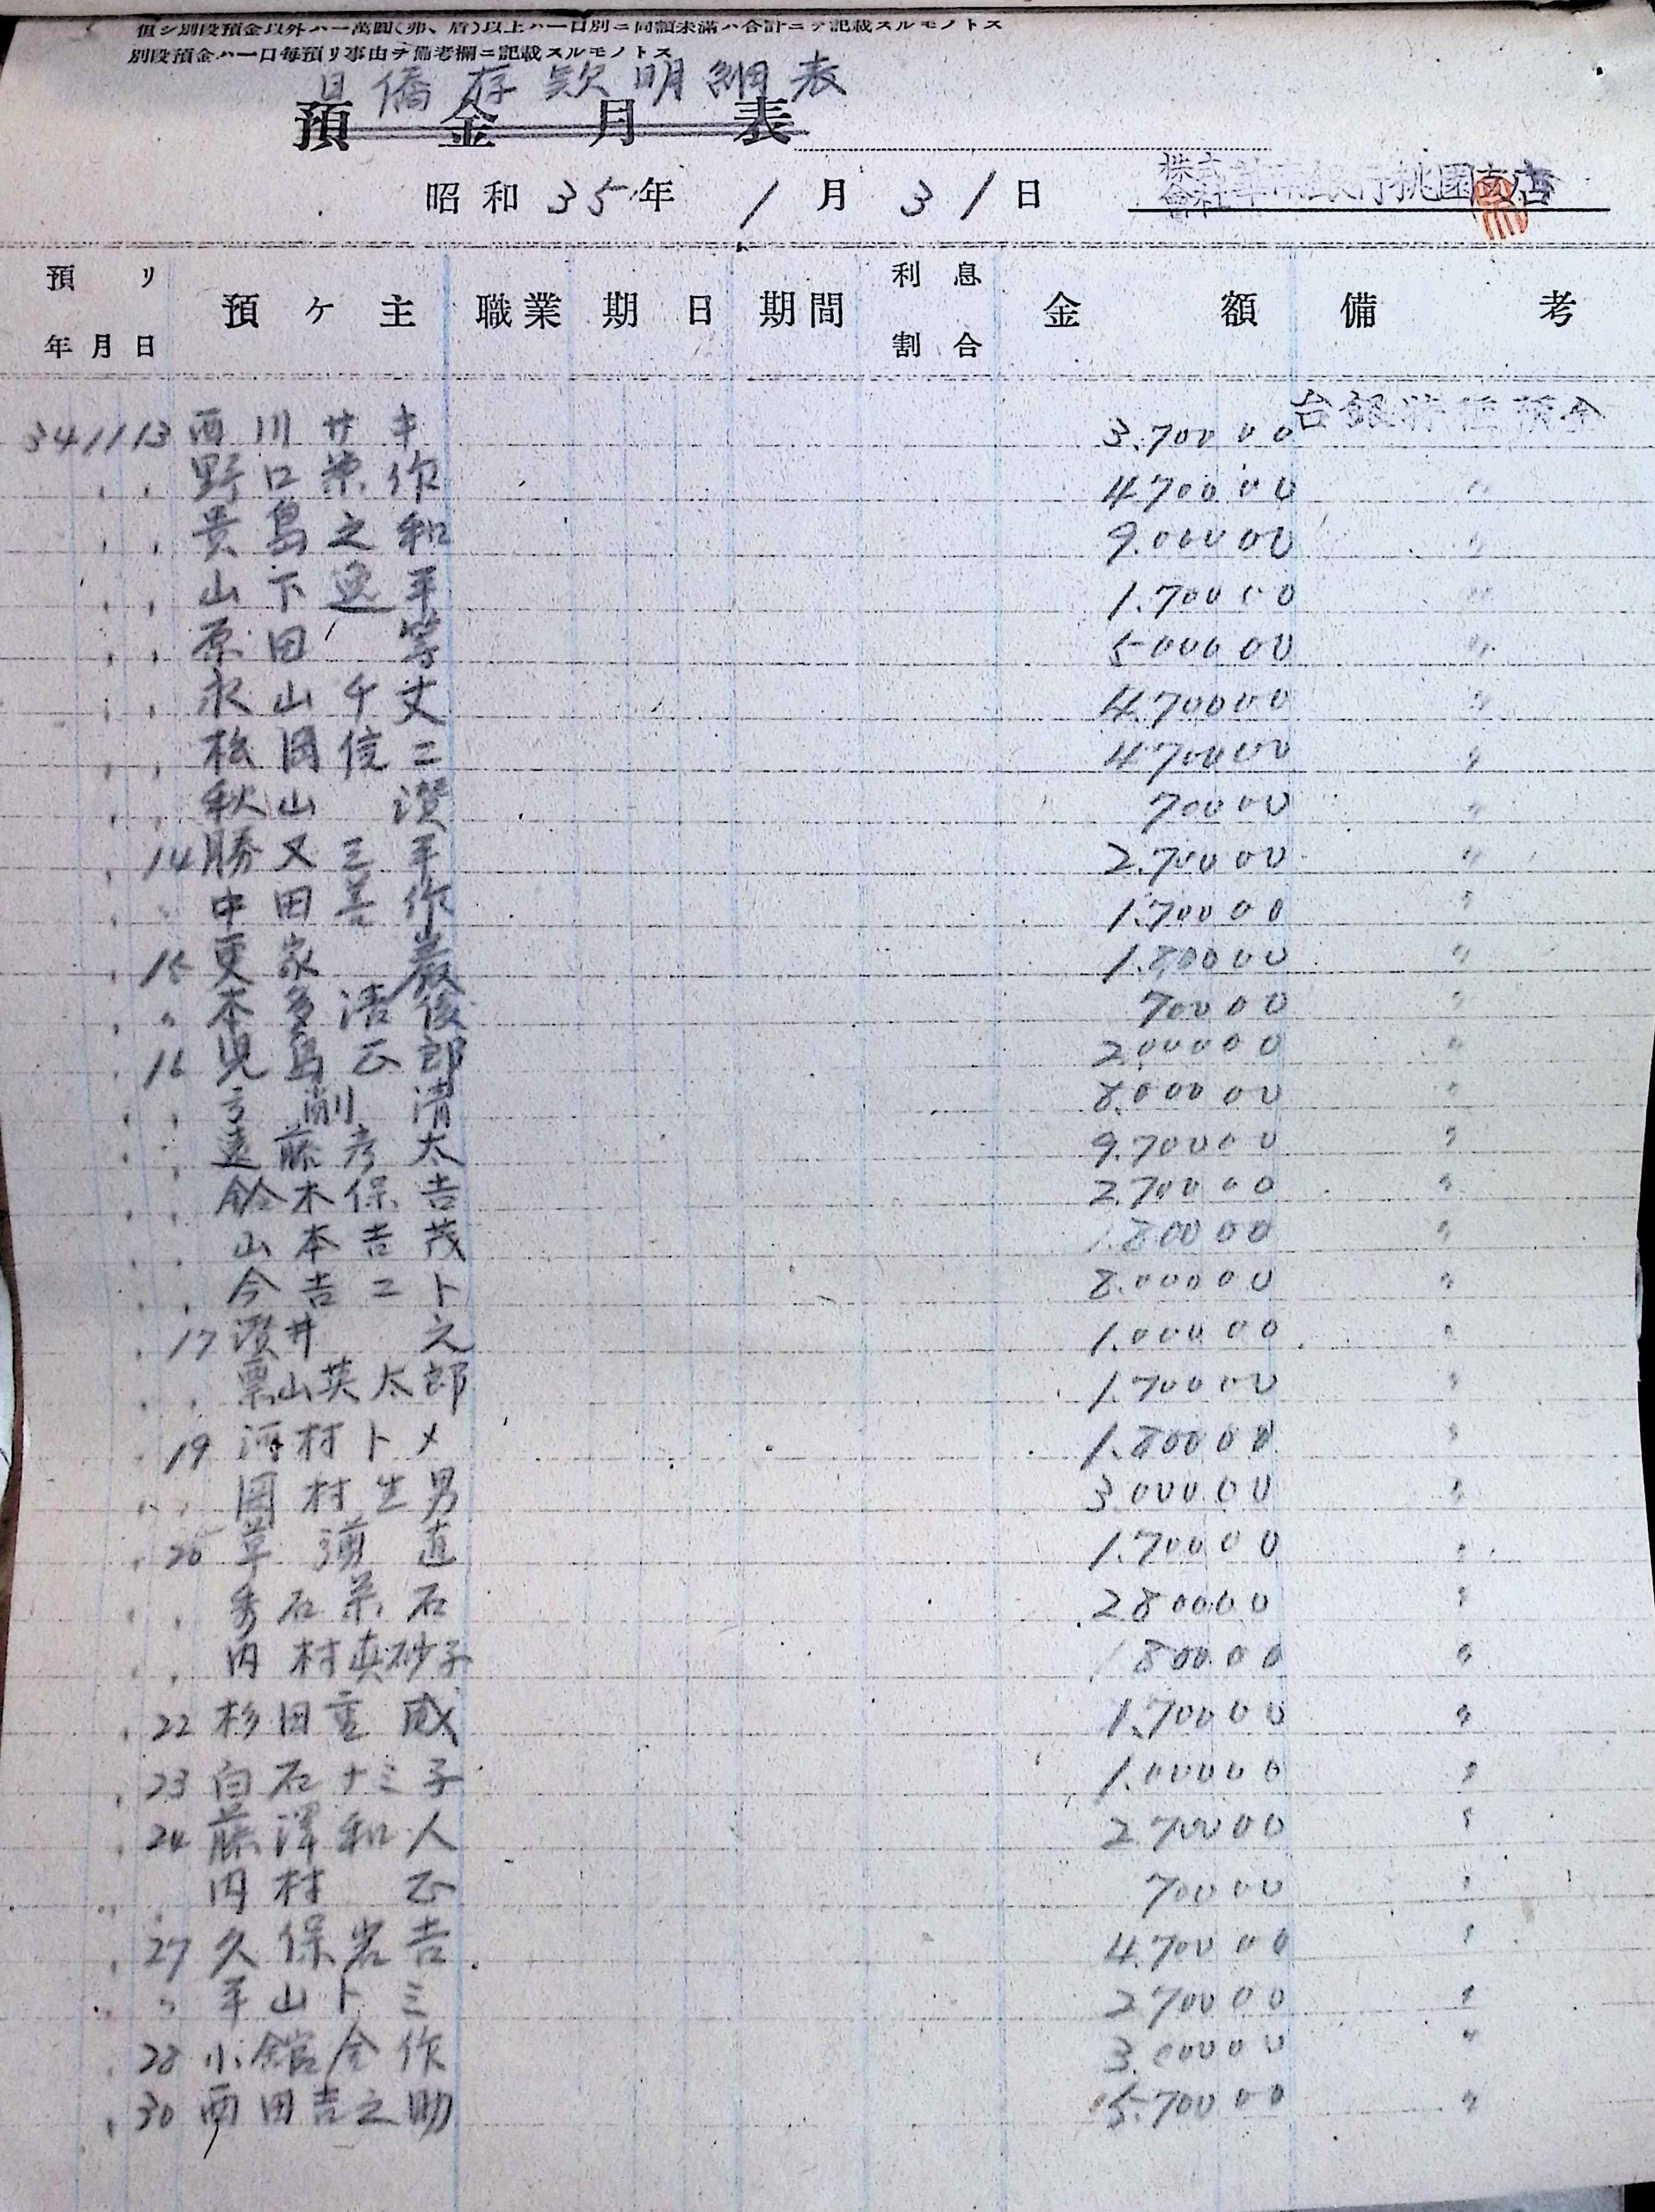 但シ別段預金以外ハ一萬圓(弗、盾)以上ハ一口別ニ同額未滿ハ合計ニテ記載スルモノトス
別段預金ハ一口每預リ事由ヲ備考欄ニ記載スルモノトス
日僑存款明細表
預金月表
昭和35年1月31日 株式會社華南銀行桃園支店
預リ年月日 預ケ主 職業 期日 期間 利息割合 金額 備考
台銀特種預金
34 11 13 西川サキ 3.700 00
〃 〃 野口栄作 4.700 00 〃
〃 〃 貴島之和 9.000 00 〃
〃 〃 山下逸平 1.700 00 〃
〃 〃 原田等 5.000 00 〃
〃 〃 永山千丈 4.700 00 〃
〃 〃 松岡信二 4.700 00 〃
〃 〃 秋山讃 700 00 〃
〃 14 勝又三平 2.700 00 〃
〃 〃 中田善作 1.700 00 〃
〃 15 更家巌 1.800 00 〃
〃 〃 本多 後 700 00 〃
〃 16 児島正郎 2.000 00 〃
〃 〃 削清 8.000 00 〃
〃 〃 遠藤彦太 9.700 00 〃
〃 〃 鈴木保吉 2.700 00 〃
〃 〃 山本吉茂 1.800 00 〃
〃 〃 今吉コト 8.000 00 〃
〃 17 讃井之 1.000 00 〃
〃 〃 栗山英太郎 1.700 00 〃
〃 19 河村トメ 1.800 00 〃
〃 〃 岡村生男 3.000 00 〃
〃 20 草 直 1.700 00 〃
〃 〃 石 石 2.800 00 〃
〃 〃 内村真砂子 1.800 00 〃
〃 22 杉田重威 1.700 00 〃
〃 23 白石ナミ子 1.000 00 〃
〃 24 藤澤和人 2.700 00 〃
〃 〃 内村正 700 00 〃
〃 27 久保岩吉 4.700 00 〃
〃 〃 平山トミ 2.700 00 〃
〃 28 小舘金作 3.000 00 〃
〃 30 西田吉之助 5.700 00 〃